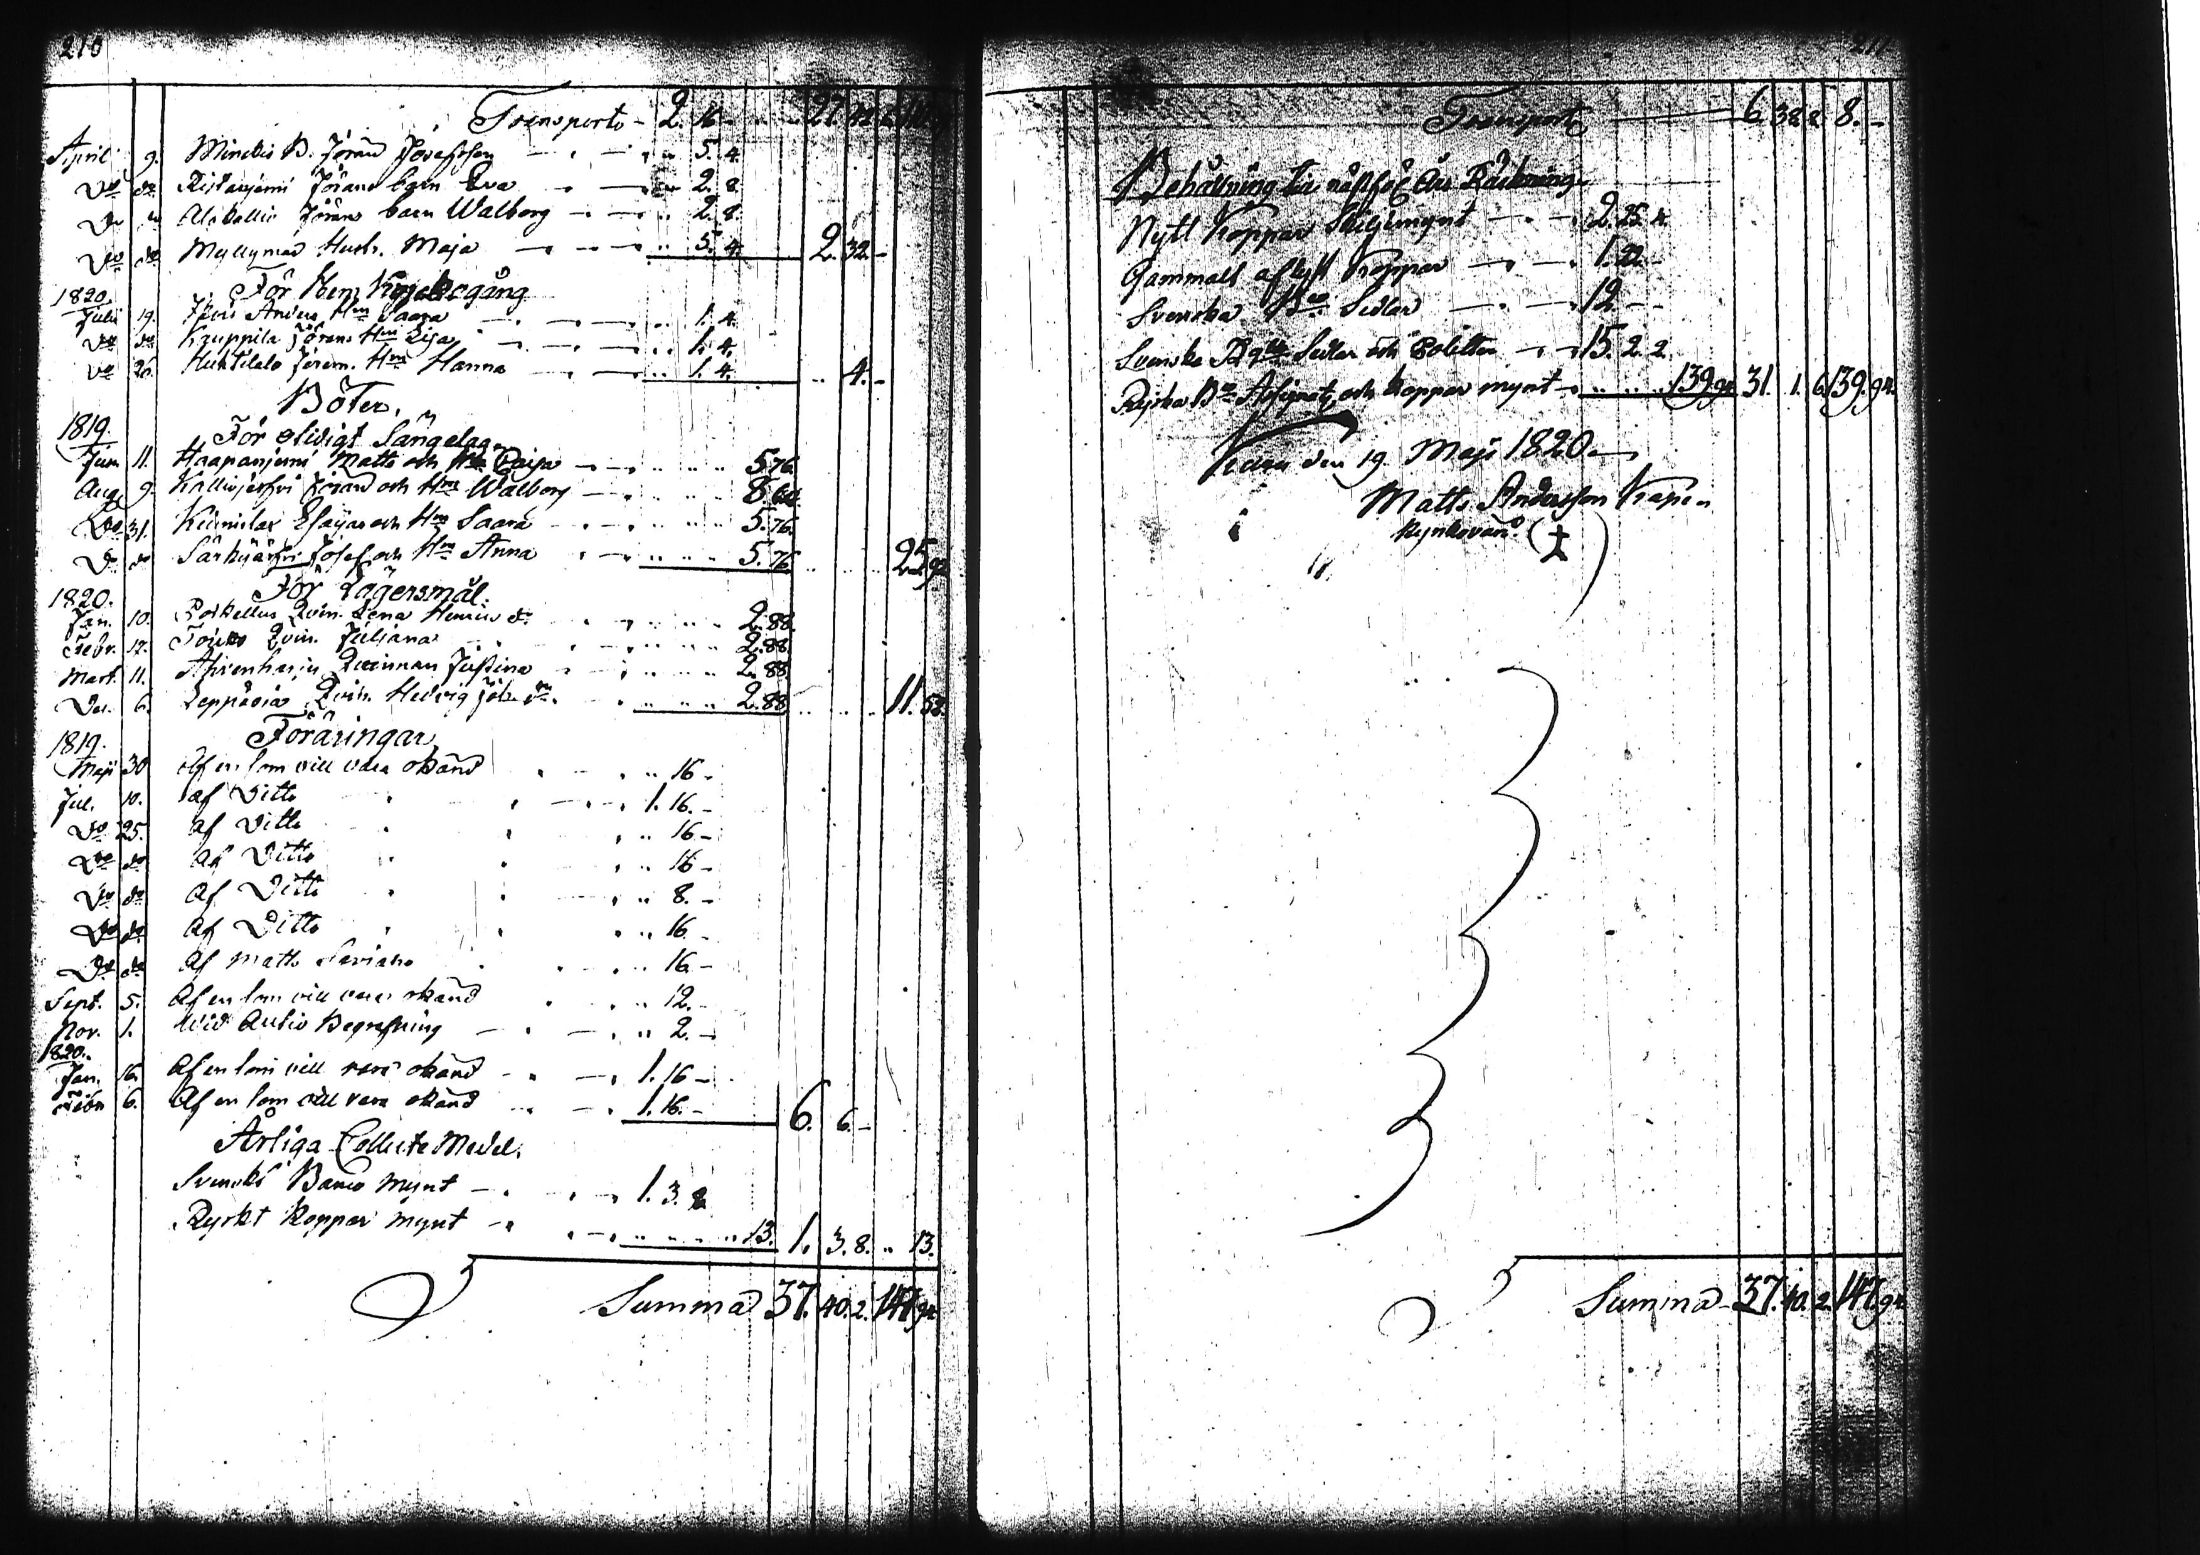 210
Transport 2. 16.
April 9. Jöran Josefsson 5. 4.
Do do Ristanjemi Jörans barn Eva 2. 8.
Do do Alakallio Jörans barn Walborg 2. 8.
Do do Myllymäs Hustr. Maja 5. 4. 2. 32. -
1820. För Hem Kyrkogång
Julii 19. Anders Hru Saara 1. 4.
Do do Kauppila Jörans Hru Lisa 1. 4.
Do 26. Huhtilalo Jörans Hru Hanna 1. 4. 4. -
Böter.
1819. För otidigt Sängelag.
Jun. 11. Haapanjemi Matts och Hru Caisa 5. 76.
Aug. 9. Kallisjerfvi Jöran och Hru Walborg 8. 64.
Do 31. Esajas och Hru Saara 5. 76.
Do do Särkijärfvi Josef och Hru Anna 5. 76. 25. 92
1820. För Lägersmål.
Jan. 10. Qvin. Lena Henrics dr. 2. 88.
Febr. 17. Qvin. Juliana 2. 88.
Mart. 11. Ahvenharju Qvinnan Justina 2. 88.
6. Leppäoja Qvin. Hedvig 2. 88. 11. 52.
1819. Föräringar
Maji 30 Af en som vill vara okänd 16 -
Jul. 10. af Ditto 1. 16. -
Do 25. af Ditto 16 -
Do do af Ditto 16 -
Do do af Ditto 8. -
Do do af Ditto 16 -
Do do af Matts 16 -
Sept. 5. Af en som vill vara okänd 12. -
Nov. 1. Wid Autio Begrafning 2. -
1820.
Jan. 16. Af en som vill vara okänd 1. 16 -
Febr. 6. Af en som vill vara okänd 1. 16. - 6. 6. -
Årliga Collecte Medel.
Svenskt Banco mynt 1. 3. 8
Ryskt koppar mynt 13. 1. 3. 8. 13.
Summa 37. 40. 2. 147. 94
211
Transport 6. 38. 8. 8. -
Behållning til nästföl. Års Räkning
Nytt Koppar Skiljemynt 2. 25. 4
Gammalt aflyst Koppar 1. 22. -
Svenska Bco Sedlar 12 -
Svenska Rgs Sedlar och Polletter 15. 2. 2.
Ryska Bco Assignat. och koppar mynt 139. 94. 31. 1. 6. 139. 94.
den 19. Maji 1820
Matts Andersson
Kyrkovärd
Summa 37. 40. 2. 147. 94